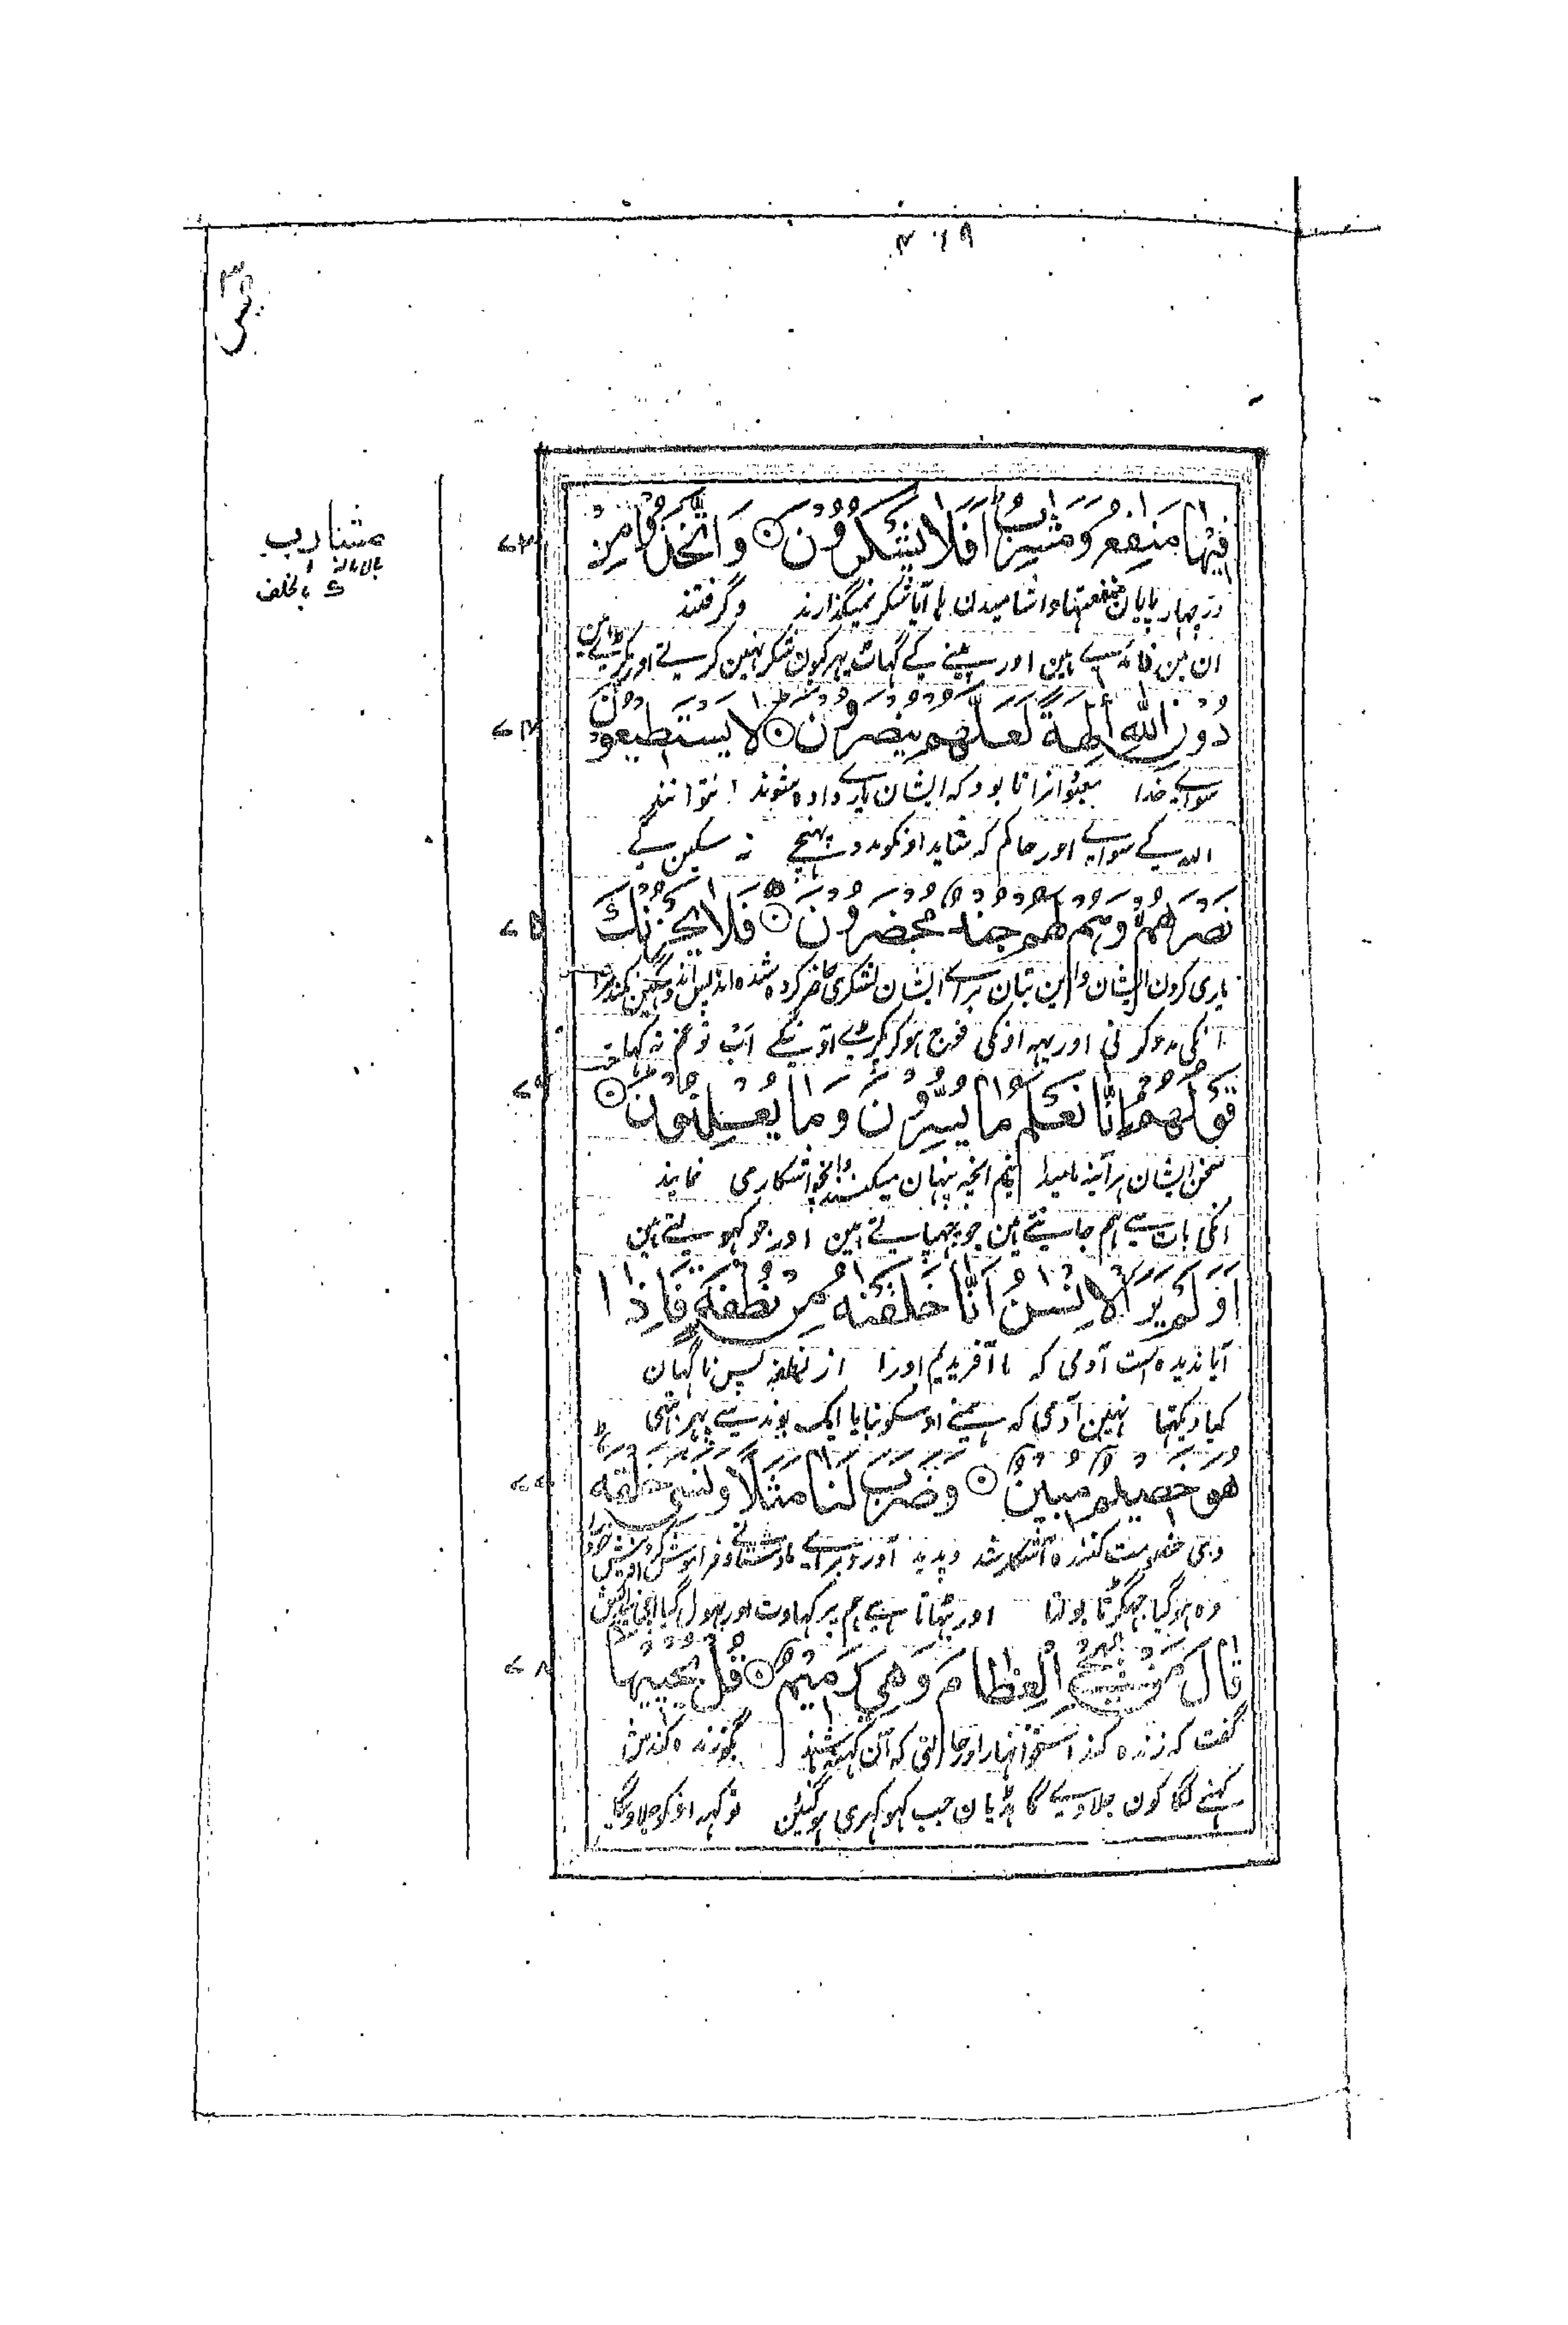 ۴۶۹
یٰس
۳۶
مشارب
بالامالۃ
ك بالخلف
فِیْهَا مَنٰفِعُ وَمَشَارِبُ اَفَلَا یَشْكُرُوْنَ ۝ وَاتَّخَذُوْا مِنْ
۷۳
در چهار پایان منفعتها و اشامیدن ها آیا شکر نمیگذارند و گرفتند
ان مین فائدے هین اور پینے کے گهاٹ پهر کیون شکر نهین کرتے اور پکڑتے هین
دُوْنِ اللّٰهِ اٰلِهَةً لَعَلَّهُمْ یُنْصَرُوْنَ ۝ لَا یَسْتَطِیْعُوْنَ
۷۴
سواے خدا معبودانرا تا بود که ایشان یارے داده شوند نتوانند
الله کے سواے اور حاکم که شاید اونکو مدد پهنچے نه سکین گے
نَصْرَهُمْ وَهُمْ لَهُمْ جُنْدٌ مُّحْضَرُوْنَ ۝ فَلَا یَحْزُنْكَ
۷۵
یاری کردن ایشان و این بتان براے ایشان لشکری حاضر کرده شده اند پس اندوهگین نکند ترا
انکی مدد کرنی اور یهه اونکی فوج هوکر پکڑے آوینگے اب تو غم نه کها
قَوْلُهُمْ اِنَّا نَعْلَمُ مَا یُسِرُّوْنَ وَمَا یُعْلِنُوْنَ ۝
۷۶
سخن ایشان هر آینه ما میدانیم انچه پنهان میکنند و انچه اشکار می نمایند
انکی بات سے هم جانتے هین جو چهپاتے هین اور جو کهولتے هین
اَوَلَمْ یَرَ الْاِنْسٰنُ اَنَّا خَلَقْنٰهُ مِنْ نُّطْفَةٍ فَاِذَا
آیا ندیده است آدمی که ما آفریدیم اورا از نطفه پس ناگهان
کیا دیکهتا نهین آدمی که همنے اوسکو بنایا ایک بوند سے پهر تبهی
هُوَ خَصِیْمٌ مُّبِیْنٌ ۝ وَضَرَبَ لَنَا مَثَلًا وَّنَسِیَ خَلْقَهٗ
۷۷
وی خصومت کننده آشکار شد و پدید آورد براے ما داستانے و فراموش کرد آفرینش خود را
وه هوگیا جهگڑتا بولتا اور بٹهاتا هے هم پر کهاوت اور بهول گیا اپنی پیدایش
قَالَ مَنْ یُّحْیِ الْعِظَامَ وَهِیَ رَمِیْمٌ ۝ قُلْ یُحْیِیْهَا
۷۸
گفت که زنده کند استخوانهارا در حالتی که آن کهنه باشند بگو زنده کندش
کهنے لگا کون جلاوے گا هڈیان جب کهوکهری هوگئین تو کهه اونکو جلاویگا